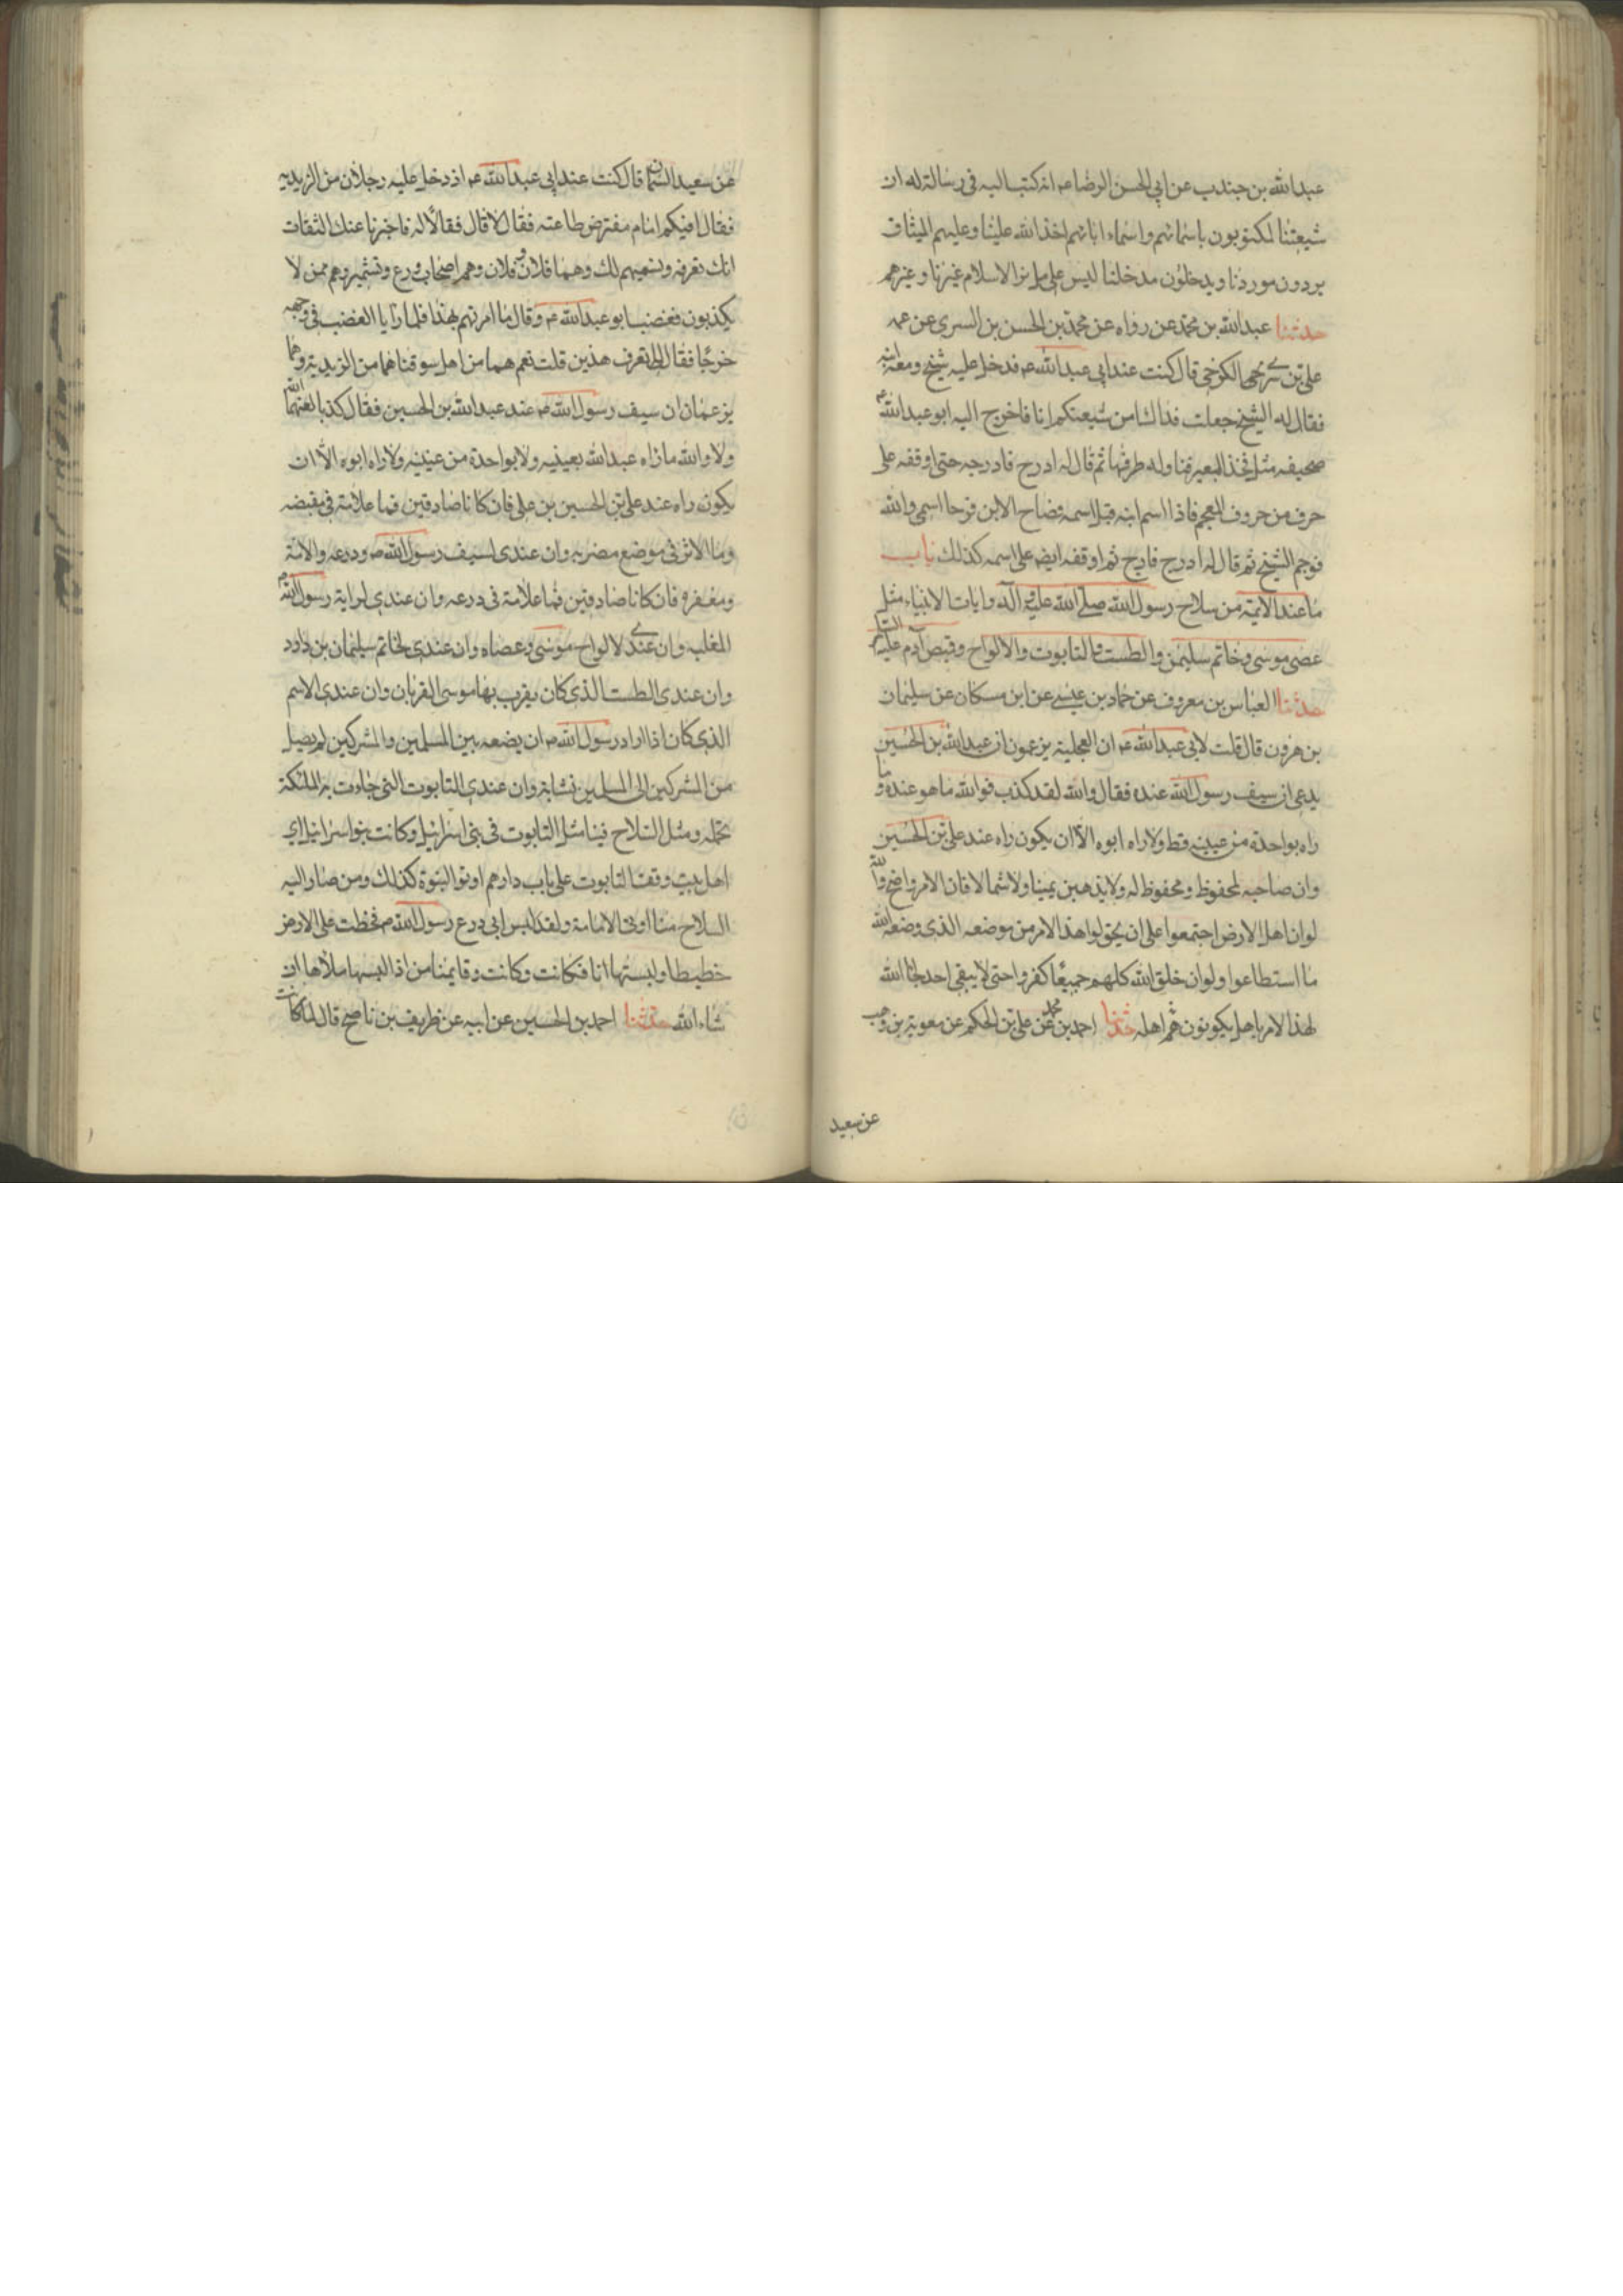 عبدالله بن جندب عن ابي الحسن الرضا عه انه كتب اليه في رسالة له ان
شيعتنا لمكتوبون باسمائهم واسماء ابائهم اخذ الله علينا وعليهم الميثاق
يردون موردنا ويدخلون مدخلنا ليس على ملة الاسلام غيرنا وغيرهم
حدثنا عبدالله بن محمد عن رواه عن محمد بن الحسن بن السرى عن عمه
على بن السرى الكرخى قال كنت عند ابي عبد الله عه فدخل عليه شيخ ومعه ابنه
فقال له الشيخ جعلت فداك امن شيعتكم انا فاخرج اليه ابو عبدالله عه
صحيفه مثل فخذ البعير فناوله طرفها ثم قال له ادرج فادرجه حتى اوقفه على
حرف من حروف المعجم فاذا اسم ابنه قبل اسمه فصاح الابن فرحا اسمى والله
فرحم الشيخ ثم قال له ادرج فادرج ثم اوقفه ايضا على اسمه كذلك باب
ما عند الايمة من سلاح رسول الله صلى الله عليه وآله وايات الانبياء مثل
عصى موسى وخاتم سليمن والطست والتابوت والالواح وقميص آدم عليه السلم
حدثنا العباس بن معروف عن حماد بن عيسى عن ابن مسكان عن سليمان
بن هرون قال قلت لابي عبدالله عه ان العجلية يزعمون ان عبدالله بن الحسين
يدعى ان سيف رسول الله عنده فقال والله لقد كذب فوالله ما هو عنده وما
راه بواحدة من عينيه قط ولا راه ابوه الا ان يكون راه عند على بن الحسين
وان صاحبه لمحفوظ ومحفوظ له ولا يذهبن يمينا ولا شمالا فان الامر واضح والله
لو ان اهل الارض اجتمعوا على ان يحولوا هذا الامر من موضعه الذى وضعه الله
ما استطاعوا ولو ان خلق الله كلهم جميعا كفروا حتى لا يبقى احد جاء الله
لهذا الامر باهل يكونون هم اهله حدثنا احمد بن محمد عن على بن الحكم عن معوية بن وهب
عن سعيد
عن سعيد السمان قال كنت عند ابي عبدالله عه اذ دخل عليه رجلان من الزيديه
فقالا افيكم امام مفترض طاعته فقال لا قال فقالا له فاخبرنا عنك الثقات
انك تعرفه ونسميهم لك وهما فلان وفلان وهم اصحاب ورع وتشمير وهم ممن لا
يكذبون فغضب ابو عبدالله عه وقال ما امرتهم بهذا فلما رايا الغضب في وجهه
خرجا فقال لى اتعرف هذين قلت نعم هما من اهل سوقنا هما من الزيدية وهما
يزعمان ان سيف رسول الله ص عند عبدالله بن الحسين فقال كذبا لعنهما الله
ولا والله ما راه عبدالله بعينيه ولا بواحدة من عينيه ولا راه ابوه الا ان
يكون راه عند على بن الحسين بن على فان كانا صادقين فما علامة في مقبضه
وما لا اثر في موضع مضربه وان عندى لسيف رسول الله ص ودرعه ولامته
ومغفره فان كانا صادقين فما علامة في درعه وان عندى لراية رسول الله ص
المغلبه وان عندى لالواح موسى وعصاه وان عندى لخاتم سليمان بن داود
وان عندى الطست الذى كان يقرب بها موسى القربان وان عندى الاسم
الذى كان اذا اراد رسول الله ص ان يضعه بين المسلمين والمشركين لم يصل
من المشركين الى المسلمين نشابة وان عندى التابوت التى جاءت به الملئكة
تحمله ومثل السلاح فينا مثل التابوت في بنى اسرائيل وكانت بنو اسرائيل اى
اهل بيت وقف التابوت على باب دارهم اوتوا النبوة كذلك ومن صار اليه
السلاح منا اوتى الامامة ولقد لبس ابى درع رسول الله ص فخطت على الارض
خطيطا ولبستها انا فكانت وكانت وقايمنا من اذا لبسها ملأها ان
شاء الله حدثنا احمد بن الحسين عن ابيه عن ظريف بن ناصح قال لما كانت